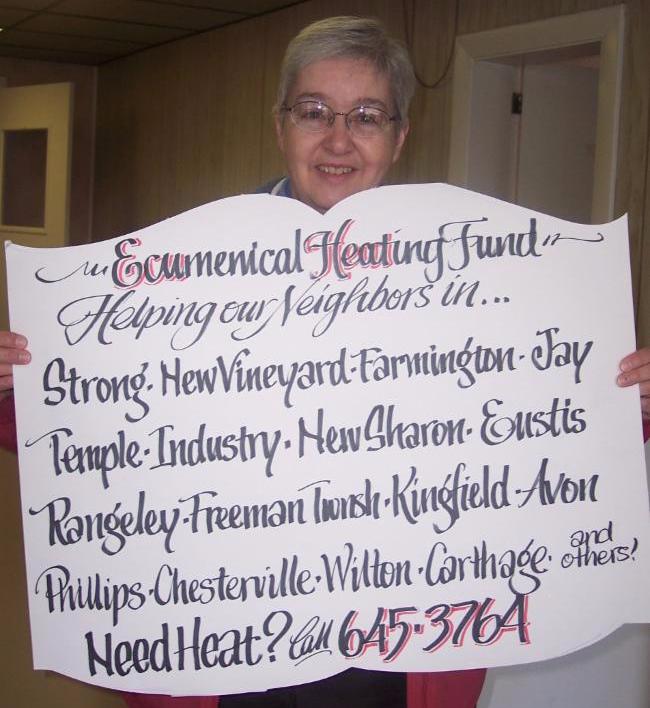 Ecumenical Heating Fund
Helping our Neighbors in...
Strong · New Vineyard · Farmington · Jay
Temple · Industry · New Sharon · Eustis
Rangeley · Freeman Twnsh · Kingfield · Avon
Phillips · Chesterville · Wilton · Carthage · and others!
Need Heat? Call 645·3764